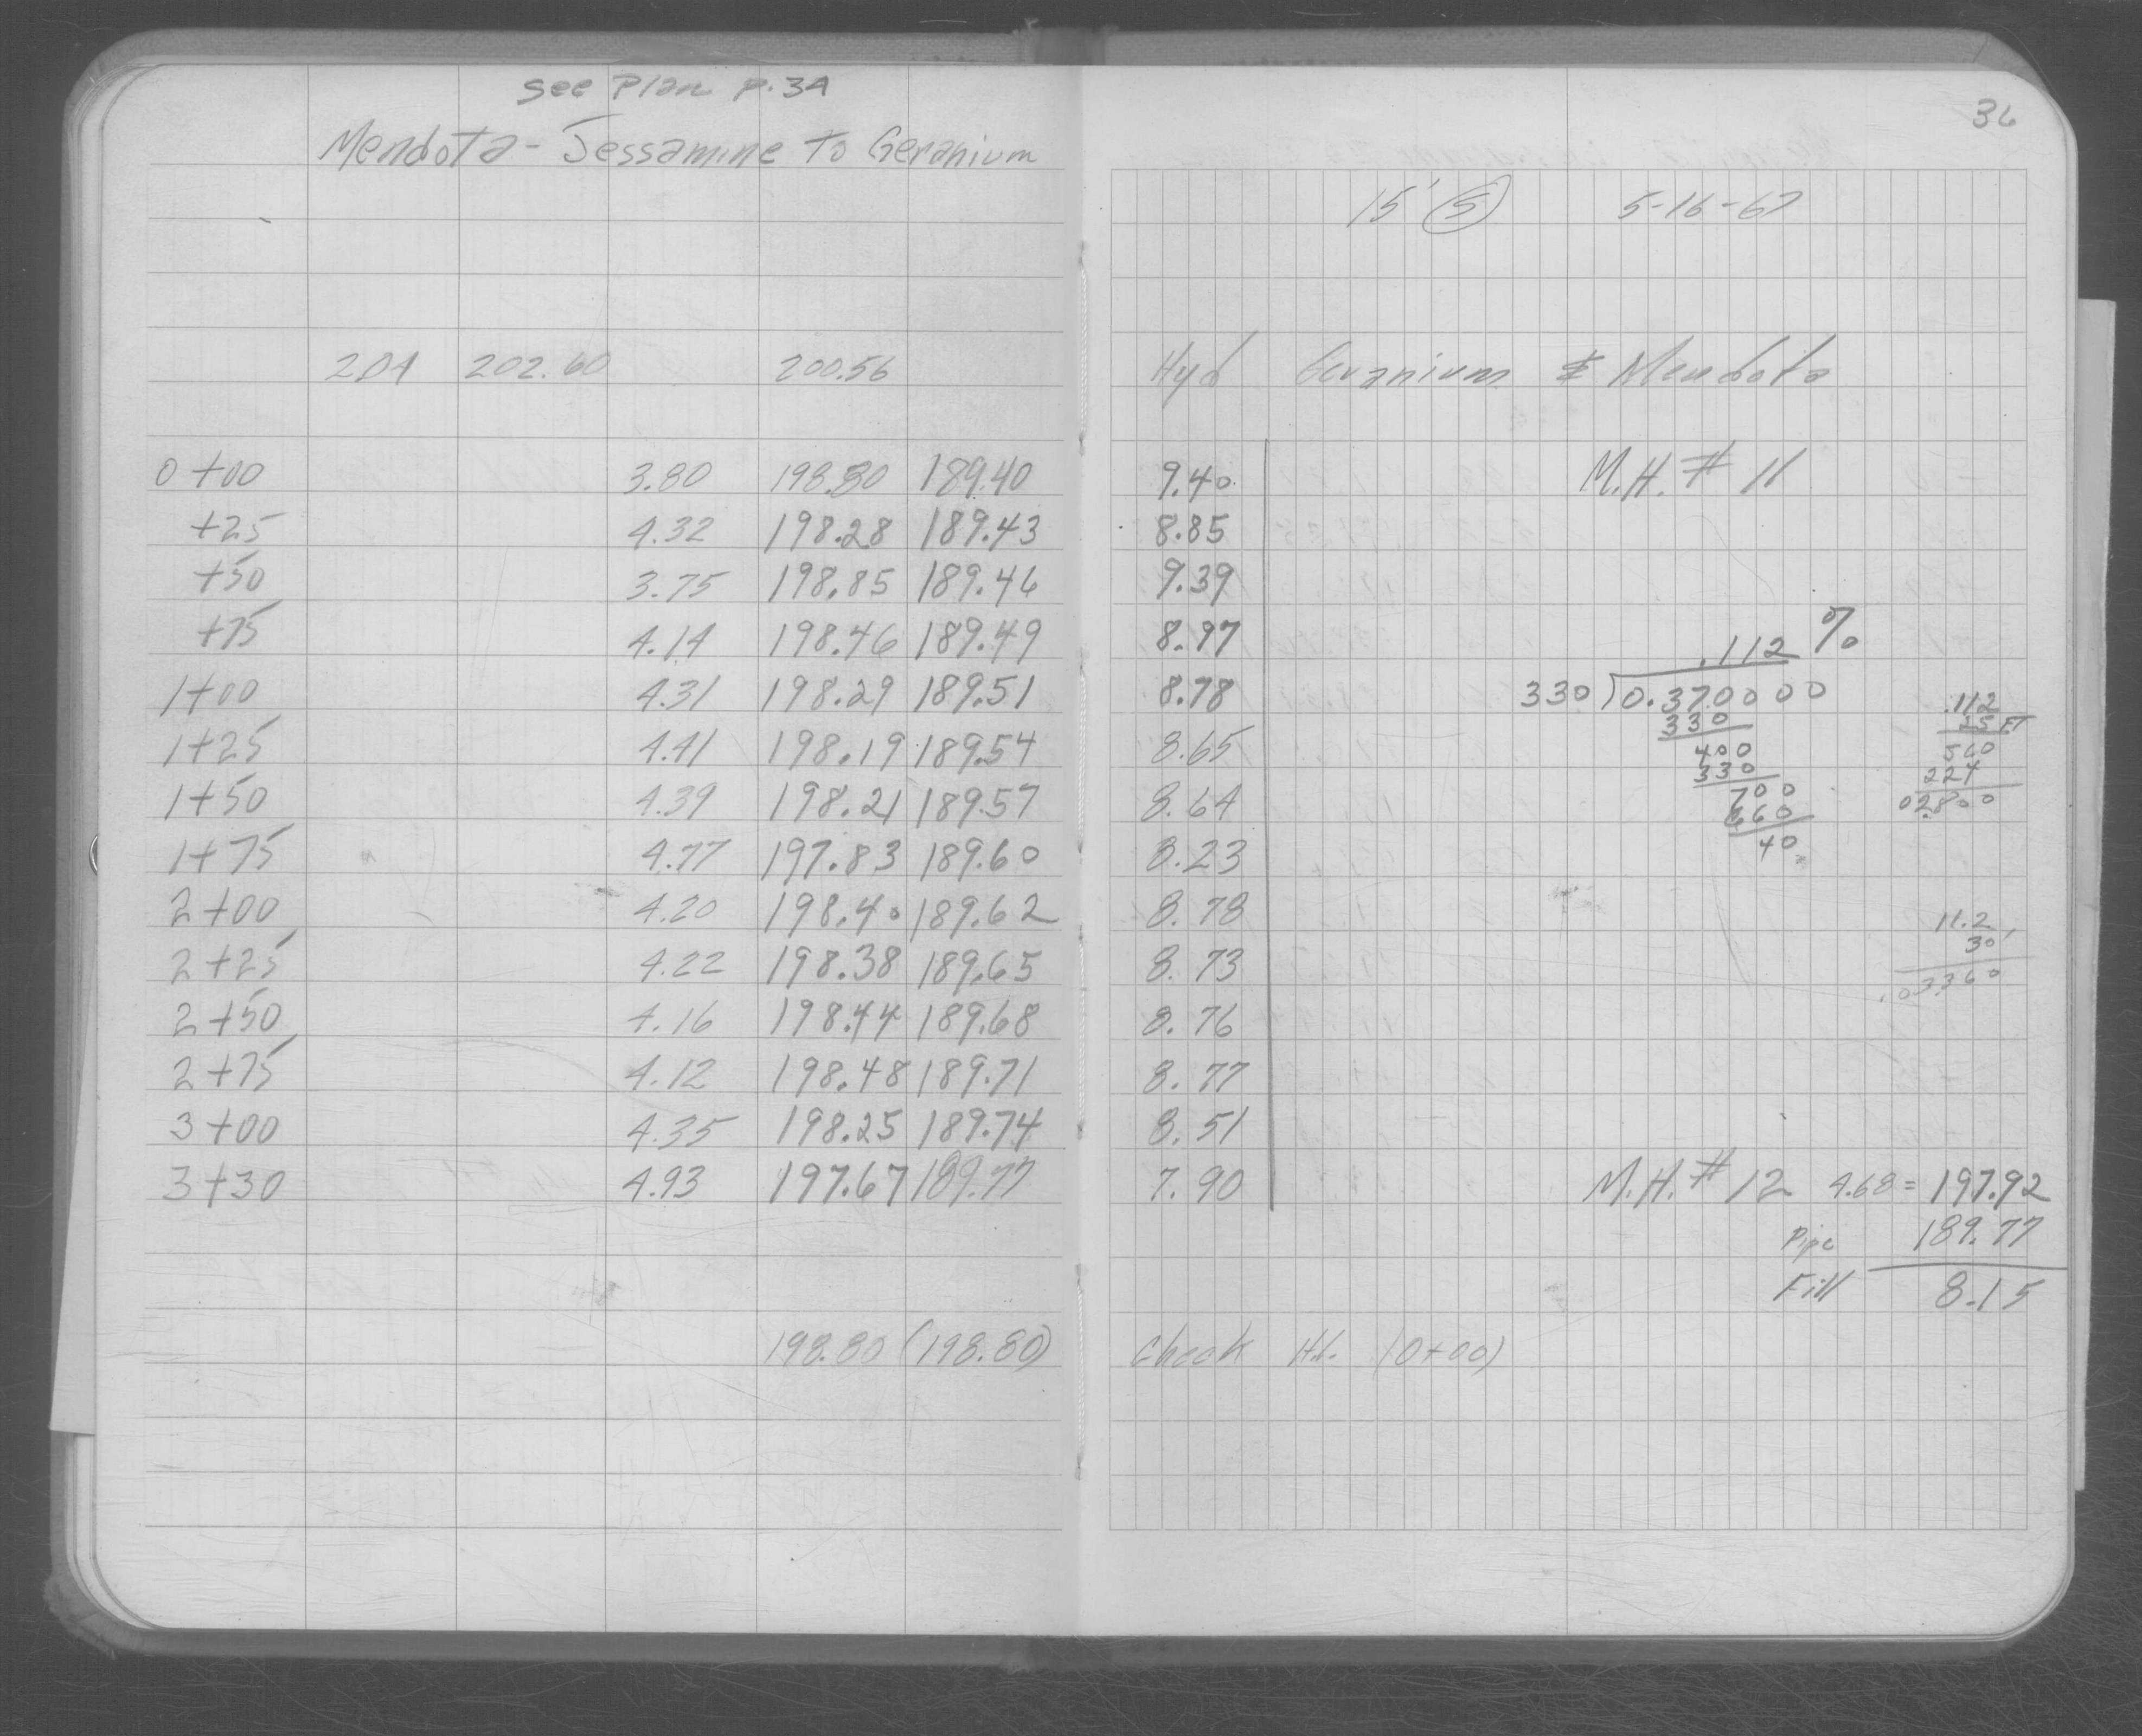 See Plan P. 34
Mendota - Jessamine to Geranium
36
15' (S) 5-16-67
2.04 202.60 200.56 Hyd Geranium & Mendota
0+00 3.80 198.80 189.40 9.40 M.H. # 11
+25 4.32 198.28 189.43 8.85
+50 3.75 198.85 189.46 9.39
+75 4.14 198.46 189.49 8.97
.112 %
1+00 4.31 198.29 189.51 8.78 330)0.370000
330
400
330
700
660
40
.112
25 FT
560
224
02.800
1+25 4.41 198.19 189.54 8.65
1+50 4.39 198.21 189.57 8.64
1+75 4.77 197.83 189.60 8.23
2+00 4.20 198.40 189.62 8.78
11.2
30'
.03360
2+25 4.22 198.38 189.65 8.73
2+50 4.16 198.44 189.68 8.76
2+75 4.12 198.48 189.71 8.77
3+00 4.35 198.25 189.74 8.51
3+30 4.93 197.67 189.77 7.90 M.H. # 12 4.68 = 197.92
Pipe 189.77
Fill 8.15
198.80 (198.80) Check Hd. (0+00)